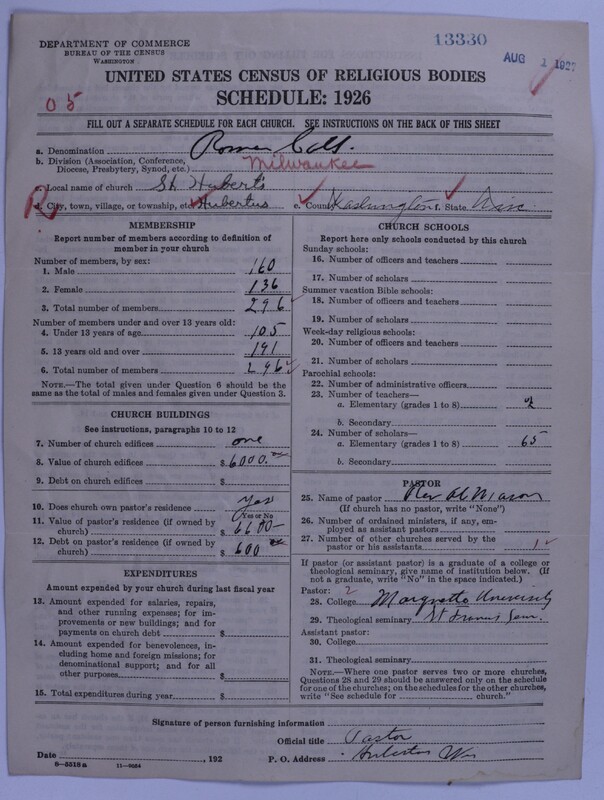 13330
DEPARTMENT OF COMMERCE
BUREAU OF THE CENSUS
WASHINGTON
AUG 1 1927
UNITED STATES CENSUS OF RELIGIOUS BODIES
SCHEDULE: 1926
05
FILL OUT A SEPARATE SCHEDULE FOR EACH CHURCH. SEE INSTRUCTIONS ON THE BACK OF THIS SHEET
a. Denomination Roman Cath.
b. Division (Association, Conference, Diocese, Presbytery, Synod, etc.) Milwaukee
c. Local name of church St Huberts
d. City, town, village, or township, etc. Hubertus e. County Washington f. State Wisc
R
MEMBERSHIP
Report number of members according to definition of
member in your church
Number of members, by sex:
1. Male 160
2. Female 136
3. Total number of members 296
Number of members under and over 13 years old:
4. Under 13 years of age 105
5. 13 years old and over 191
6. Total number of members 296
NOTE.—The total given under Question 6 should be
same as the total of males and females given under Question 3.
CHURCH BUILDINGS
See instructions, paragraphs 10 to 12
7. Number of church edifices one
8. Value of church edifices $ 6000.
9. Debt on church edifices $
10. Does church own pastor's residence? yes
(Yes or No)
11. Value of pastor's residence (if owned by
church) $ 6600-
12. Debt on pastor's residence (if owned by
church) $ 600
EXPENDITURES
Amount expended by your church during last fiscal year
13. Amount expended for salaries, repairs,
and other running expenses; for im-
provements or new buildings; and for
payments on church debt $
14. Amount expended for benevolences, in-
cluding home and foreign missions; for
denominational support; and for all
other purposes $
15. Total expenditures during year $
CHURCH SCHOOLS
Report here only schools conducted by this church
Sunday schools:
16. Number of officers and teachers
17. Number of scholars
Summer vacation Bible schools:
18. Number of officers and teachers
19. Number of scholars
Week-day religious schools:
20. Number of officers and teachers
21. Number of scholars
Parochial schools:
22. Number of administrative officers
23. Number of teachers—
a. Elementary (grades 1 to 8) 2
b. Secondary
24. Number of scholars—
a. Elementary (grades 1 to 8) 65
b. Secondary
PASTOR
25. Name of pastor Rev
(If church has no pastor, write "None")
26. Number of ordained ministers, if any, em-
ployed as assistant pastors
27. Number of other churches served by the
pastor or his assistants 1
If pastor (or assistant pastor) is a graduate of a college or
theological seminary, give name of institution below. (If
not a graduate, write "No" in the space indicated.)
Pastor: 2
28. College Marquette University
29. Theological seminary St Francis Sem.
Assistant pastor:
30. College
31. Theological seminary
NOTE.—Where one pastor serves two or more churches,
Questions 28 and 29 should be answered only on the schedule
for one of the churches; on the schedules for the other churches,
write "See schedule for church."
Signature of person furnishing information
Official title Pastor
Date , 192 P. O. Address Hubertus Wis
8—5518a 11—9084